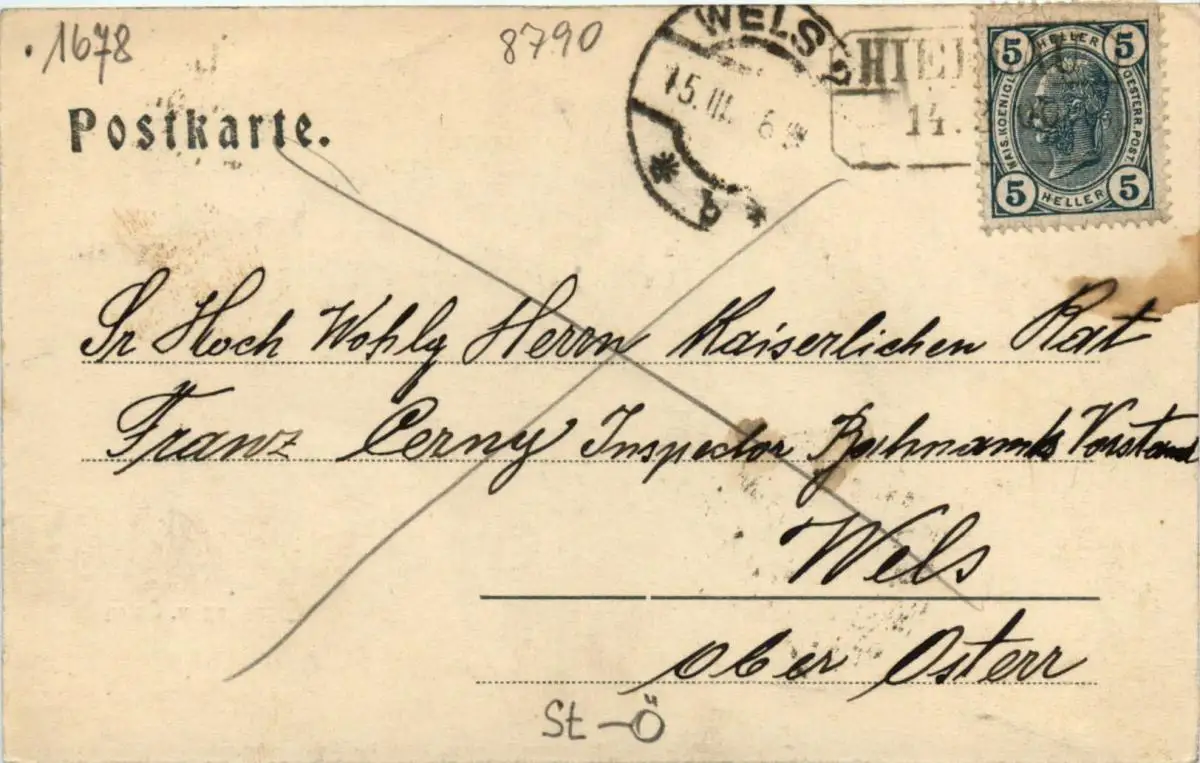 1678
8790
WELS 2
15. III. 6
* b *
HIEF
14.
5 HELLER 5
KAIS. KOENIGL. OESTERR. POST
5 HELLER 5
Postkarte.
Sr Hoch Wohlg Herrn Kaiserlichen Rat
Franz Cerny Inspector Bahnamts Vorstand
Wels
Ober Osterr
St-Ö